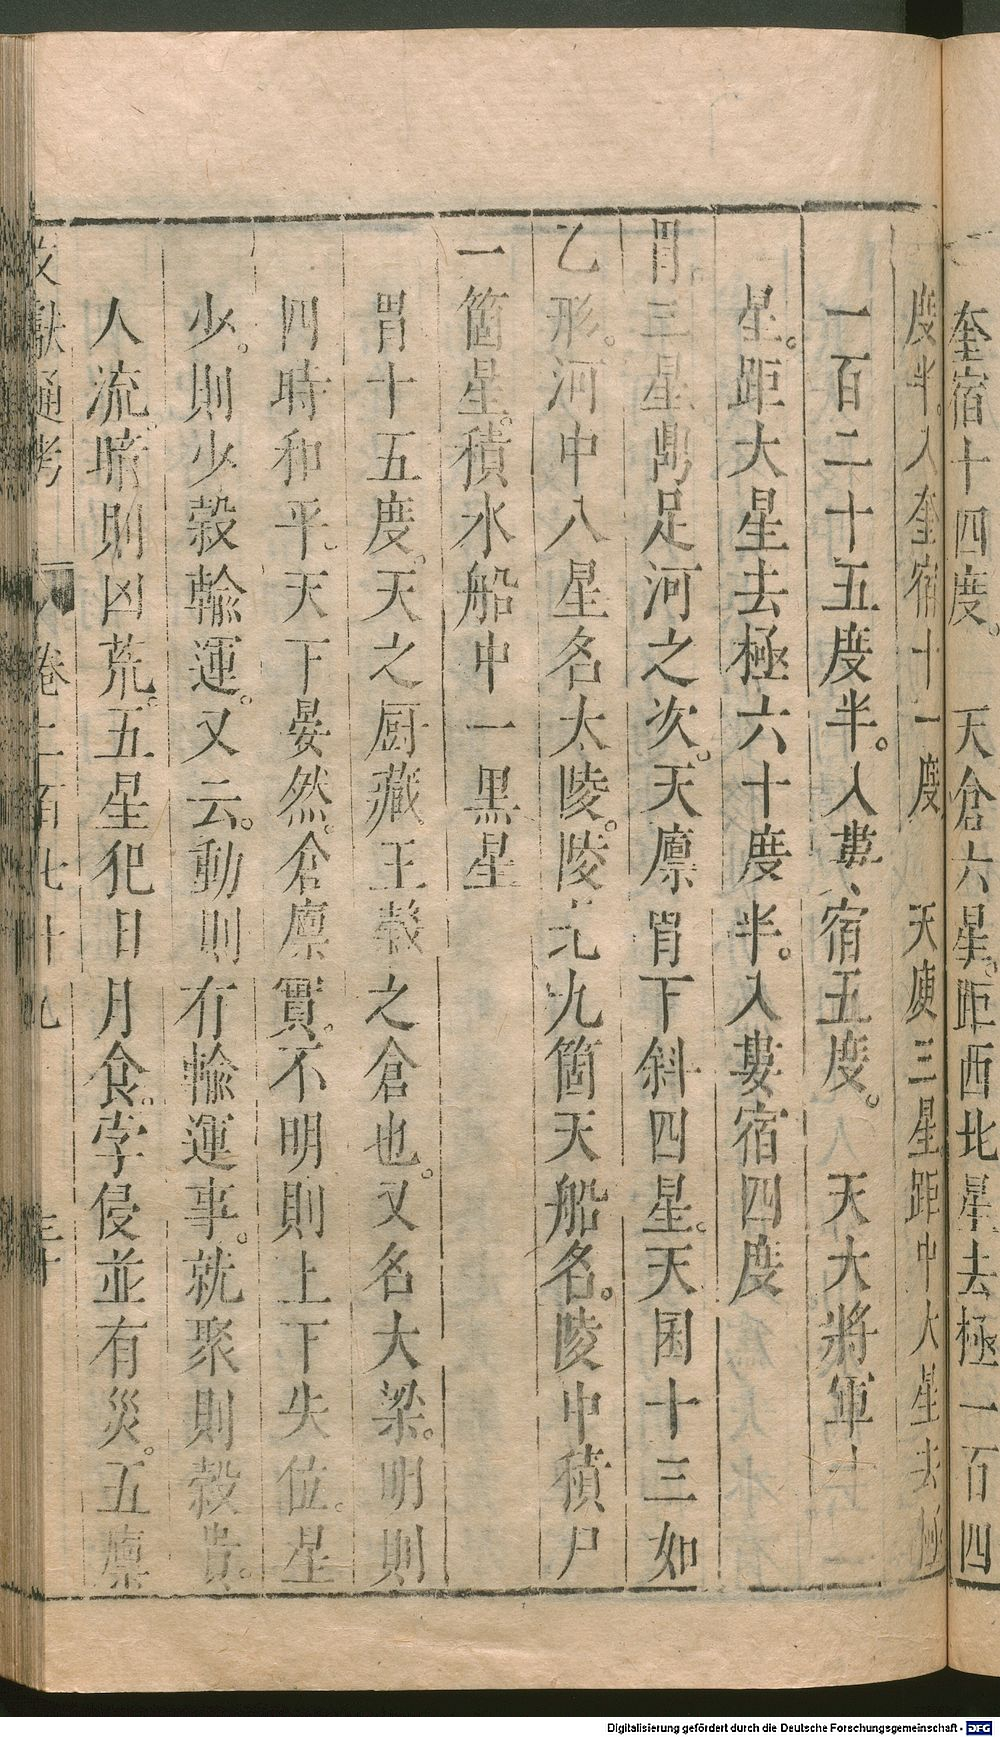 奎宿十四度。 天倉六星。距西北星去極一百四
度半。入奎宿十一度 天庾三星距中大星去極
一百二十五度半。入婁宿五度。 天大將軍十一
星。距大星去極六十度半。入婁宿四度
胃三星鼎足河之次。天廩胃下斜四星。天囷十三如
乙形。河中八星名太陵。陵北九箇天船名。陵中積尸
一箇星。積水船中一黑星
胃十五度。天之厨藏王穀之倉也。又名大梁。明則
四時和平。天下晏然。倉廪實。不明則上下失位。星
少。則少穀輸運。又云。動則有輸運事。就聚則穀貴。
人流。暗則凶荒。五星犯日月食。孛侵並有災。五廪
文獻通考 卷二百七十九 三十
Digitalisierung gefördert durch die Deutsche Forschungsgemeinschaft - DFG